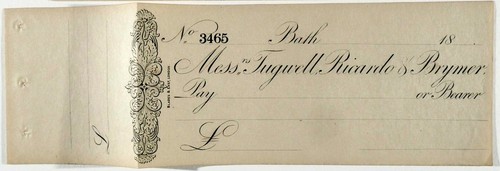 No 3465 Bath 18
Mess.rs Tugwell, Ricardo & Brymer.
Pay or Bearer
£
£